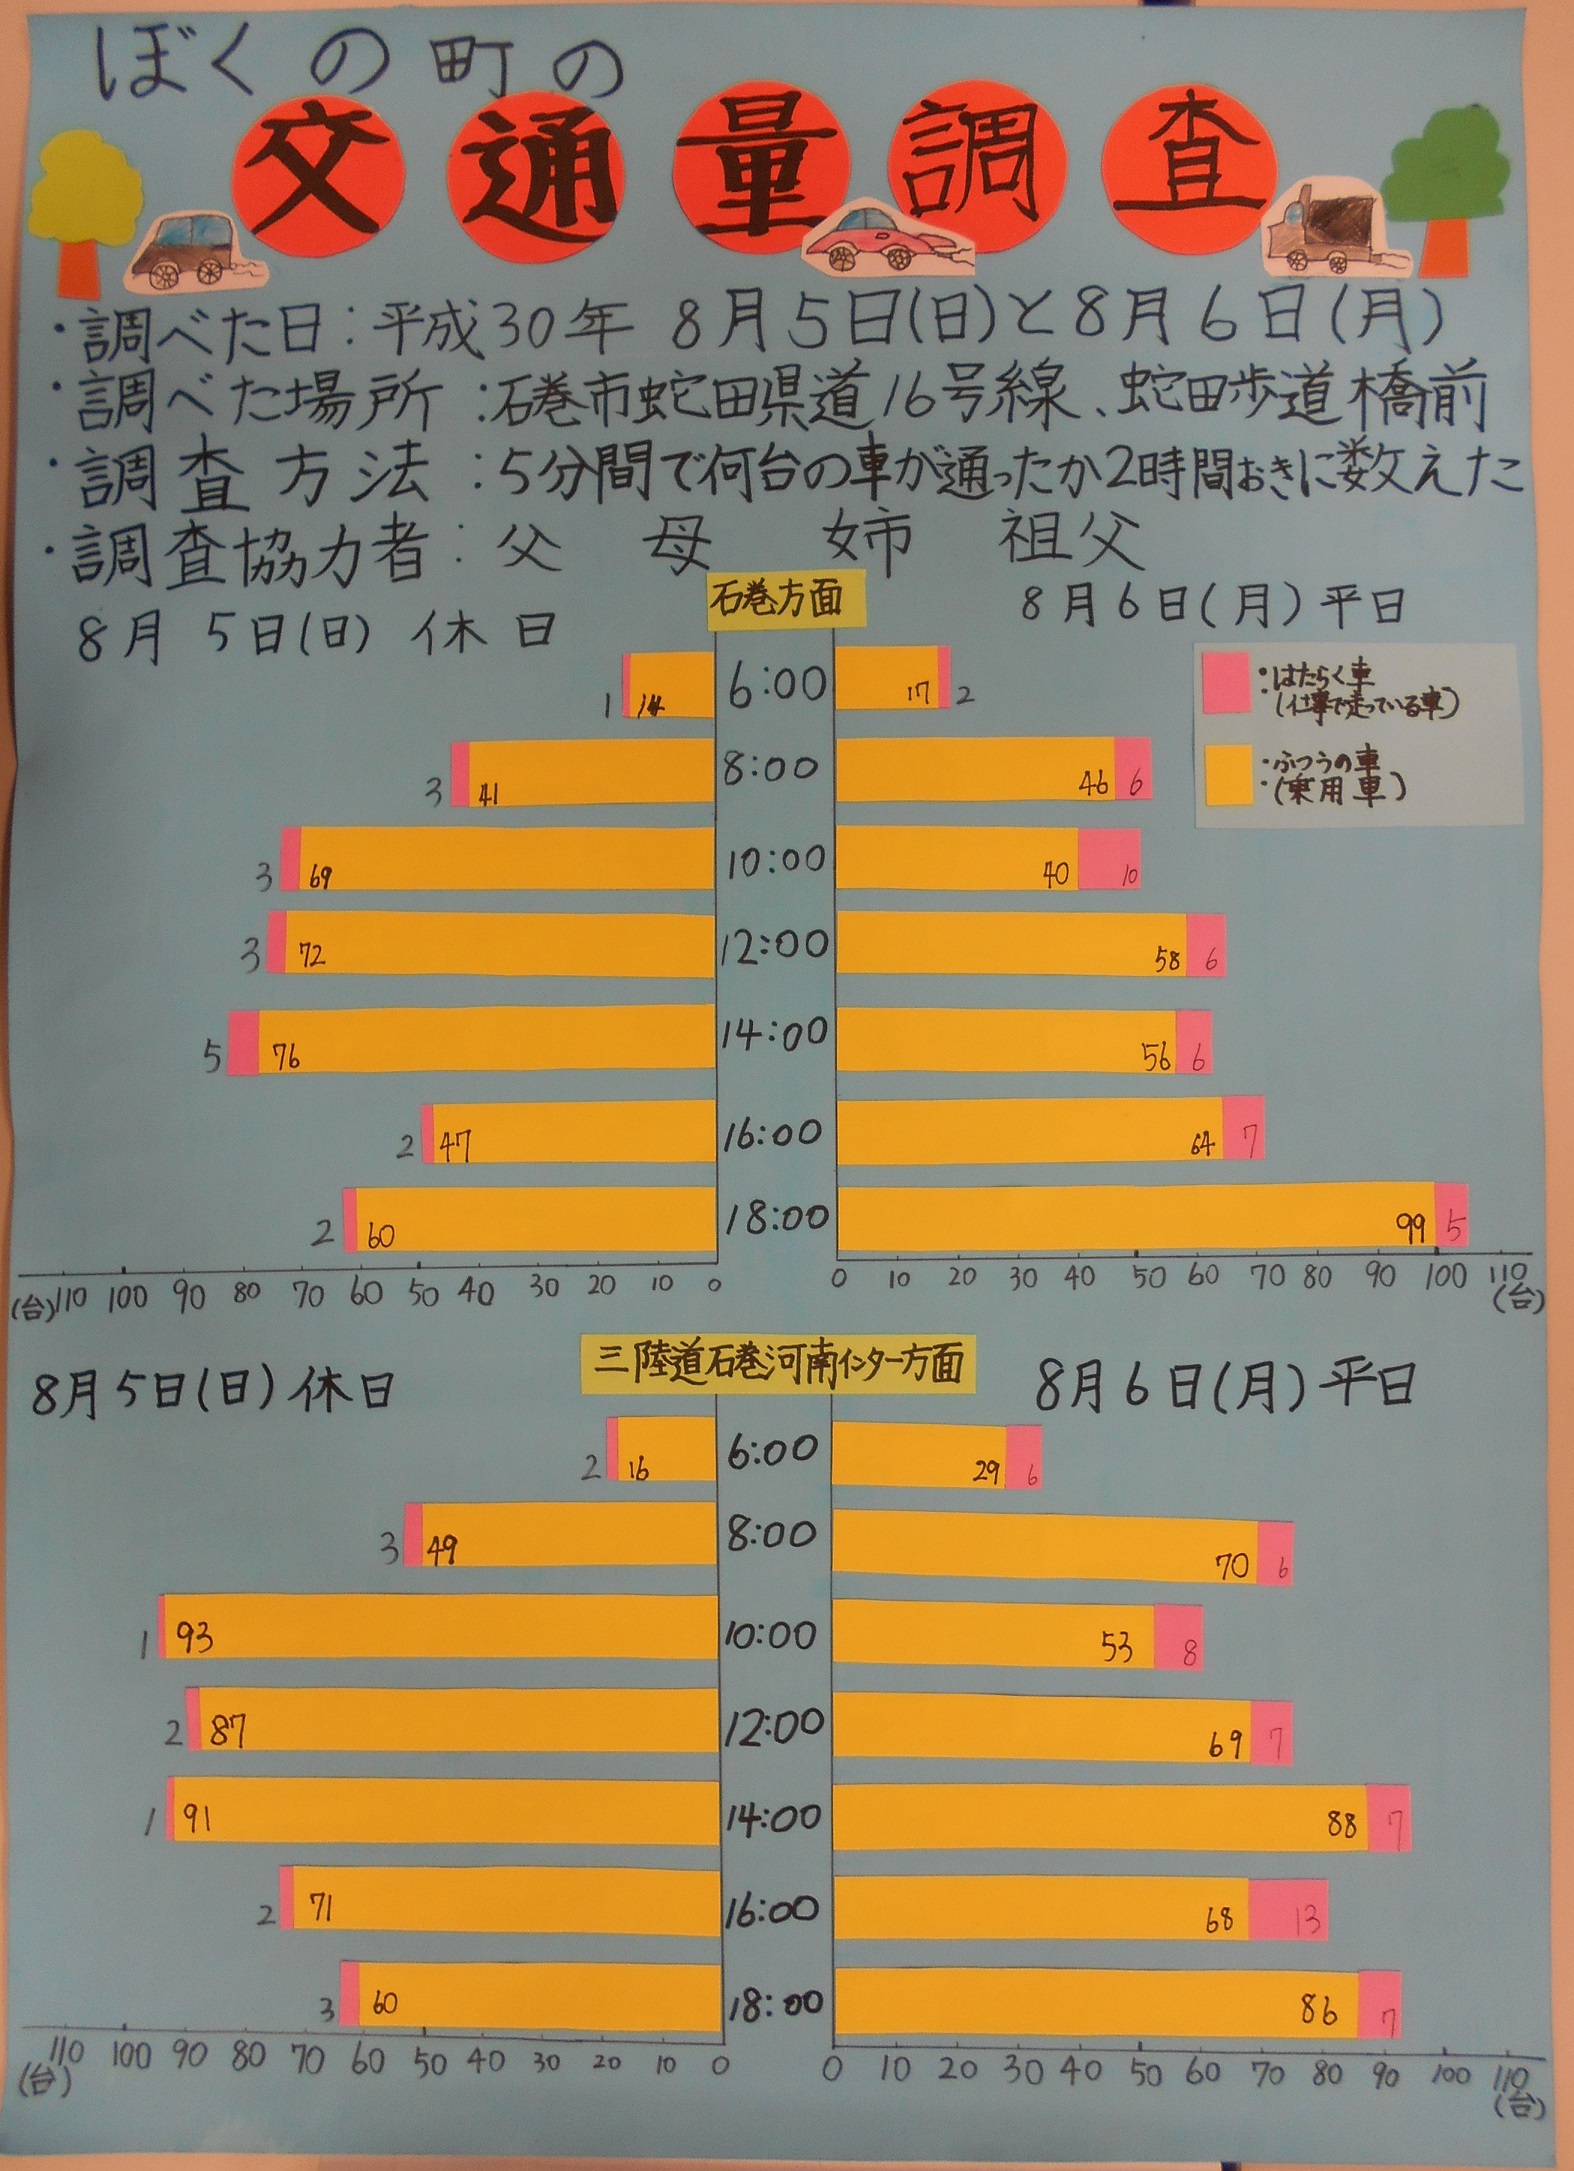 ぼくの町の
交通量調査
・調べた日：平成30年 8月5日(日)と8月6日(月)
・調べた場所：石巻市蛇田県道16号線、蛇田歩道橋前
・調査方法：5分間で何台の車が通ったか2時間おきに数えた
・調査協力者：父 母 姉 祖父
石巻方面
8月5日(日) 休日
8月6日(月) 平日
・はたらく車
・(仕事で走っている車)
・ふつうの車
・(乗用車)
1 14 6:00 17 2
3 41 8:00 46 6
3 69 10:00 40 10
3 72 12:00 58 6
5 76 14:00 56 6
2 47 16:00 64 7
2 60 18:00 99 5
(台) 110 100 90 80 70 60 50 40 30 20 10 0 0 10 20 30 40 50 60 70 80 90 100 110 (台)
三陸道石巻河南インター方面
8月5日(日) 休日
8月6日(月) 平日
2 16 6:00 29 6
3 49 8:00 70 6
1 93 10:00 53 8
2 87 12:00 69 7
1 91 14:00 88 7
2 71 16:00 68 13
3 60 18:00 86 7
110 100 90 80 70 60 50 40 30 20 10 0 0 10 20 30 40 50 60 70 80 90 100 110
(台) (台)